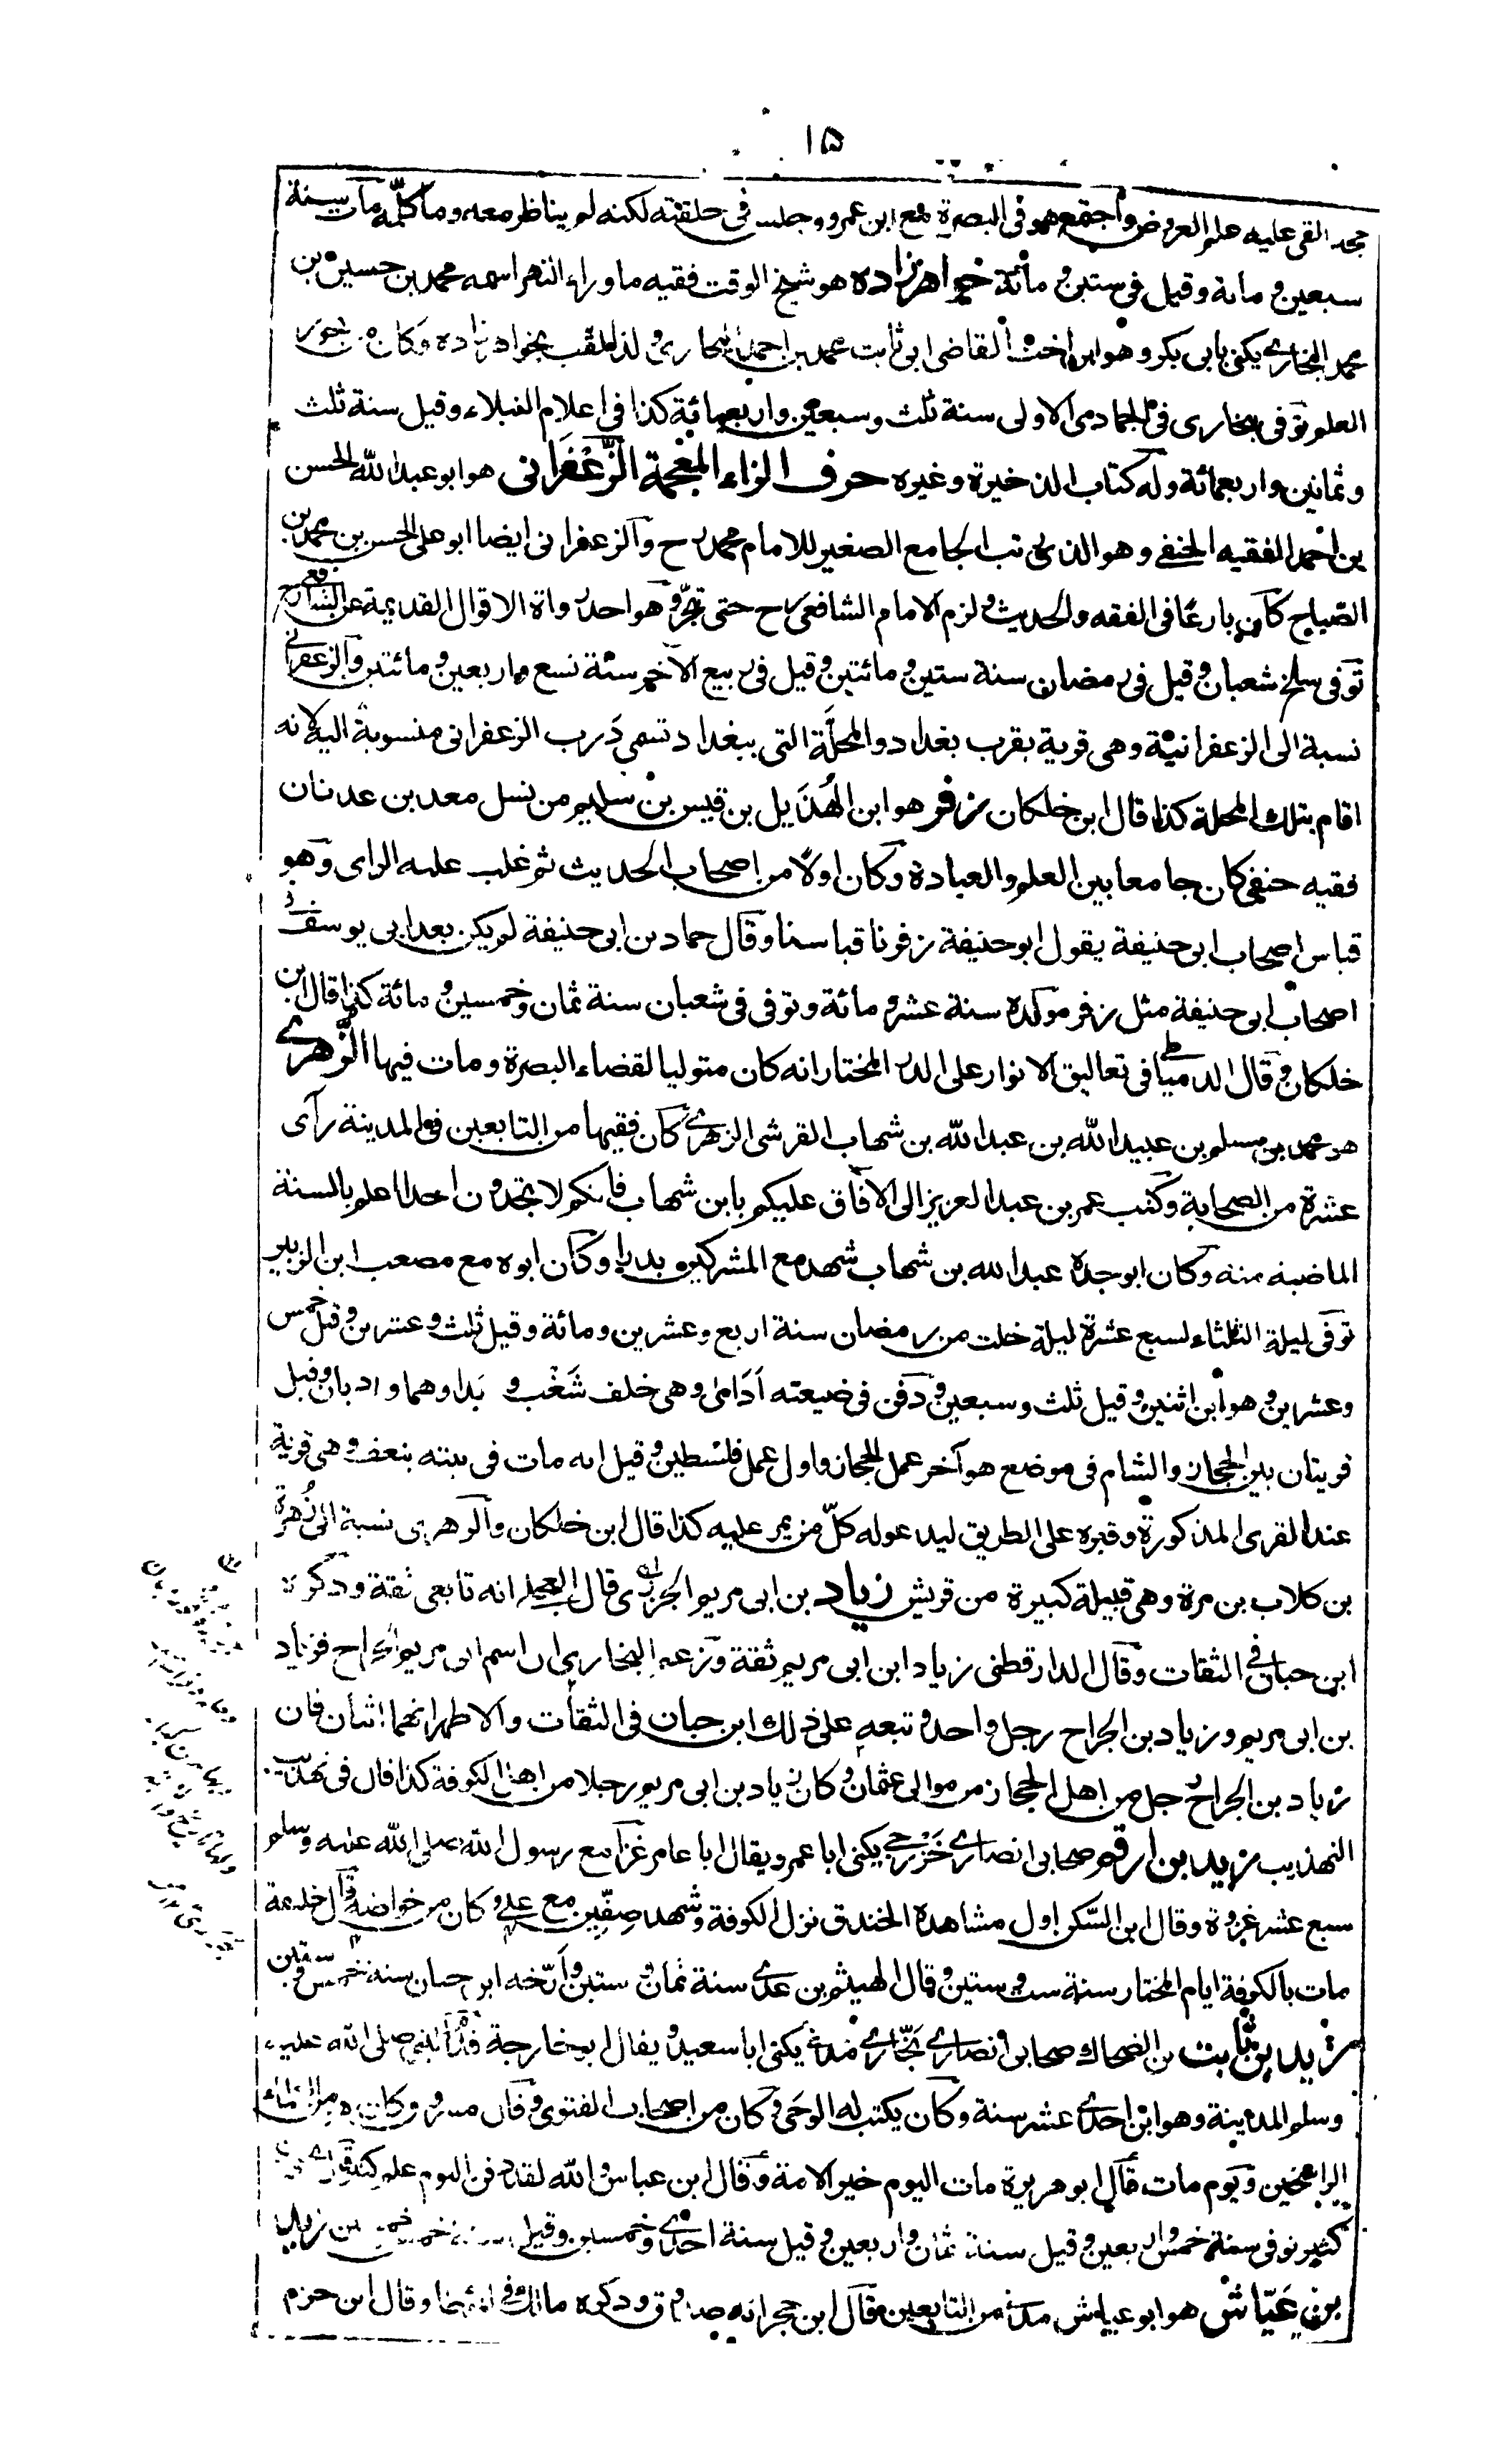 ١٥
القى عليه علم العروض واجتمع هو فى البصرة مع ابن عمرو وجلس فى حلقته لكنه لم يناظر معه وما كلّمه مات سنة
سبعين و مائة وقيل فى ستين و مائة خواهرزاده هو شيخ الوقت فقيه ما وراء النهر اسمه محمد بن حسين بن
محمد البخارى يكنى بابى بكر وهو ابن اخت القاضى ابى ثابت محمد بن احمد البخارى ولذا يلقب بخواهرزاده وكان من بحور
العلم توفى ببخارى فى الجمادى الاولى سنة ثلث وسبعين واربعمائة كذا فى اعلام النبلاء وقيل سنة ثلث
وثمانين واربعمائة وله كتاب الذخيرة وغيره حرف الزاء المعجمة الزَّعْفَرَانى هو ابو عبد الله الحسن
بن احمد الفقيه الحنفى وهو الذى رتب الجامع الصغير للامام محمد رح والزعفرانى ايضا ابو على الحسن بن محمد بن
الصّباح كان بارعًا فى الفقه والحديث ولزم الامام الشافعى رح حتى تبحّر وهو احد رواة الاقوال القديمة عن الشافعى رح
توفى سلخ شعبان وقيل فى رمضان سنة ستين و مائتين وقيل فى ربيع الآخر سنة تسع واربعين و مائتين والزعفرانى
نسبة الى الزعفرانيّة وهى قرية بقرب بغداد والمحلّة التى ببغداد تسمى دَرب الزعفرانى منسوبة اليه لانه
اقام بتلك المحلة كذا قال ابن خلكان زفر هو ابن الهُذَيل بن قيس بن سليم من نسل معد بن عدنان
فقيه حنفى كان جامعا بين العلم والعبادة وكان اولًا من اصحاب الحديث ثم غلب عليه الراى وهو
قياس اصحاب ابى حنيفة يقول ابو حنيفة زفرنا قياسنا وقال حماد بن ابى حنيفة لم يكن بعد ابى يوسف فى
اصحاب ابى حنيفة مثل زفر مولده سنة عشر و مائة وتوفى فى شعبان سنة ثمان وخمسين و مائة كذا قال ابن
خلكان وقال الدمياطى فى تعاليق الانوار على الدر المختار انه كان متوليا لقضاء البصرة ومات فيها الزُّهرى
هو محمد بن مسلم بن عبيد الله بن عبد الله بن شهاب القرشى الزهرى كان فقيها من التابعين فى المدينة رآى
عشرة من الصحابة وكتب عمر بن عبد العزيز الى الآفاق عليكم بابن شهاب فانكم لا تجدون احدا اعلم بالسنة
الماضية منه وكان ابو جده عبد الله بن شهاب شهد مع المشركين بدرا وكان ابوه مع مصعب ابن الزبير
توفى ليلة الثلثاء لسبع عشرة ليلة خلت من رمضان سنة اربع وعشرين ومائة وقيل ثلث وعشرين وقيل خمس
وعشرين وهو ابن اثنين وقيل ثلث وسبعين ودفن فى ضيعته اَدَامى وهى خلف شَغْب و بَدا وهما واديان وقيل
قريتان بين الحجاز والشام فى موضع هو آخر عمل الحجاز واول عمل فلسطين وقيل انه مات فى بيته بنعف وهى قرية
عند القرى المذكورة وقبره على الطريق ليدعو له كلّ من يمر عليه كذا قال ابن خلكان والزهرى نسبة الى زُهرة
بن كلاب بن مرة وهى قبيلة كبيرة من قريش زياد بن ابى مريم الجزرى قال العجلى انه تابعى ثقة وذكره
ابن حبان فى الثقات وقال الدارقطنى زياد ابن ابى مريم ثقة وزعم البخارى ان اسم ابى مريم الجراح فزياد
بن ابى مريم وزياد بن الجراح رجل واحد وتبعه على ذلك ابن حبان فى الثقات والاظهر انهما اثنان فان
زياد بن الجراح رجل من اهل الحجاز من موالى عثمان وكان زياد بن ابى مريم رجلا من اهل الكوفة كذا قال فى تهذيب
التهذيب زيد بن ارقم صحابى انصارى خَزْرجى يكنى ابا عمرو يقال ابا عامر غزا مع رسول الله صلى الله عليه وسلم
سبع عشر غزوة وقال ابن السّكن اول مشاهده الخندق نزل الكوفة وشهد صِفّين مع على وكان من خواصه قال خليفة
مات بالكوفة ايام المختار سنة ست وستين وقال الهيثم بن عدى سنة ثمان و ستين وارّخه ابن حبان سنة خمس وستين
زيد بن ثابت بن الضحاك صحابى انصارى نَجّارى مدنى يكنى ابا سعيد ويقال ابو خارجة قدم النبى صلى الله عليه
وسلم المدينة وهو ابن احدى عشر سنة وكان يكتب له الوحى وكان من اصحاب الفتوى وقال مسروق كان من
الراسخين ويوم مات قال ابو هريرة مات اليوم خير الامة وقال ابن عباس والله لقد دفن اليوم علم
كثير توفى سنة خمس واربعين وقيل سنة ثمان واربعين وقيل سنة احدى وخمسين وقيل سنة خمس وخمسين زيد
بن عَيّاش هو ابو عياش مدنى من التابعين قال ابن حجر انه صدوق وذكره مالك فى وقال ابن حزم